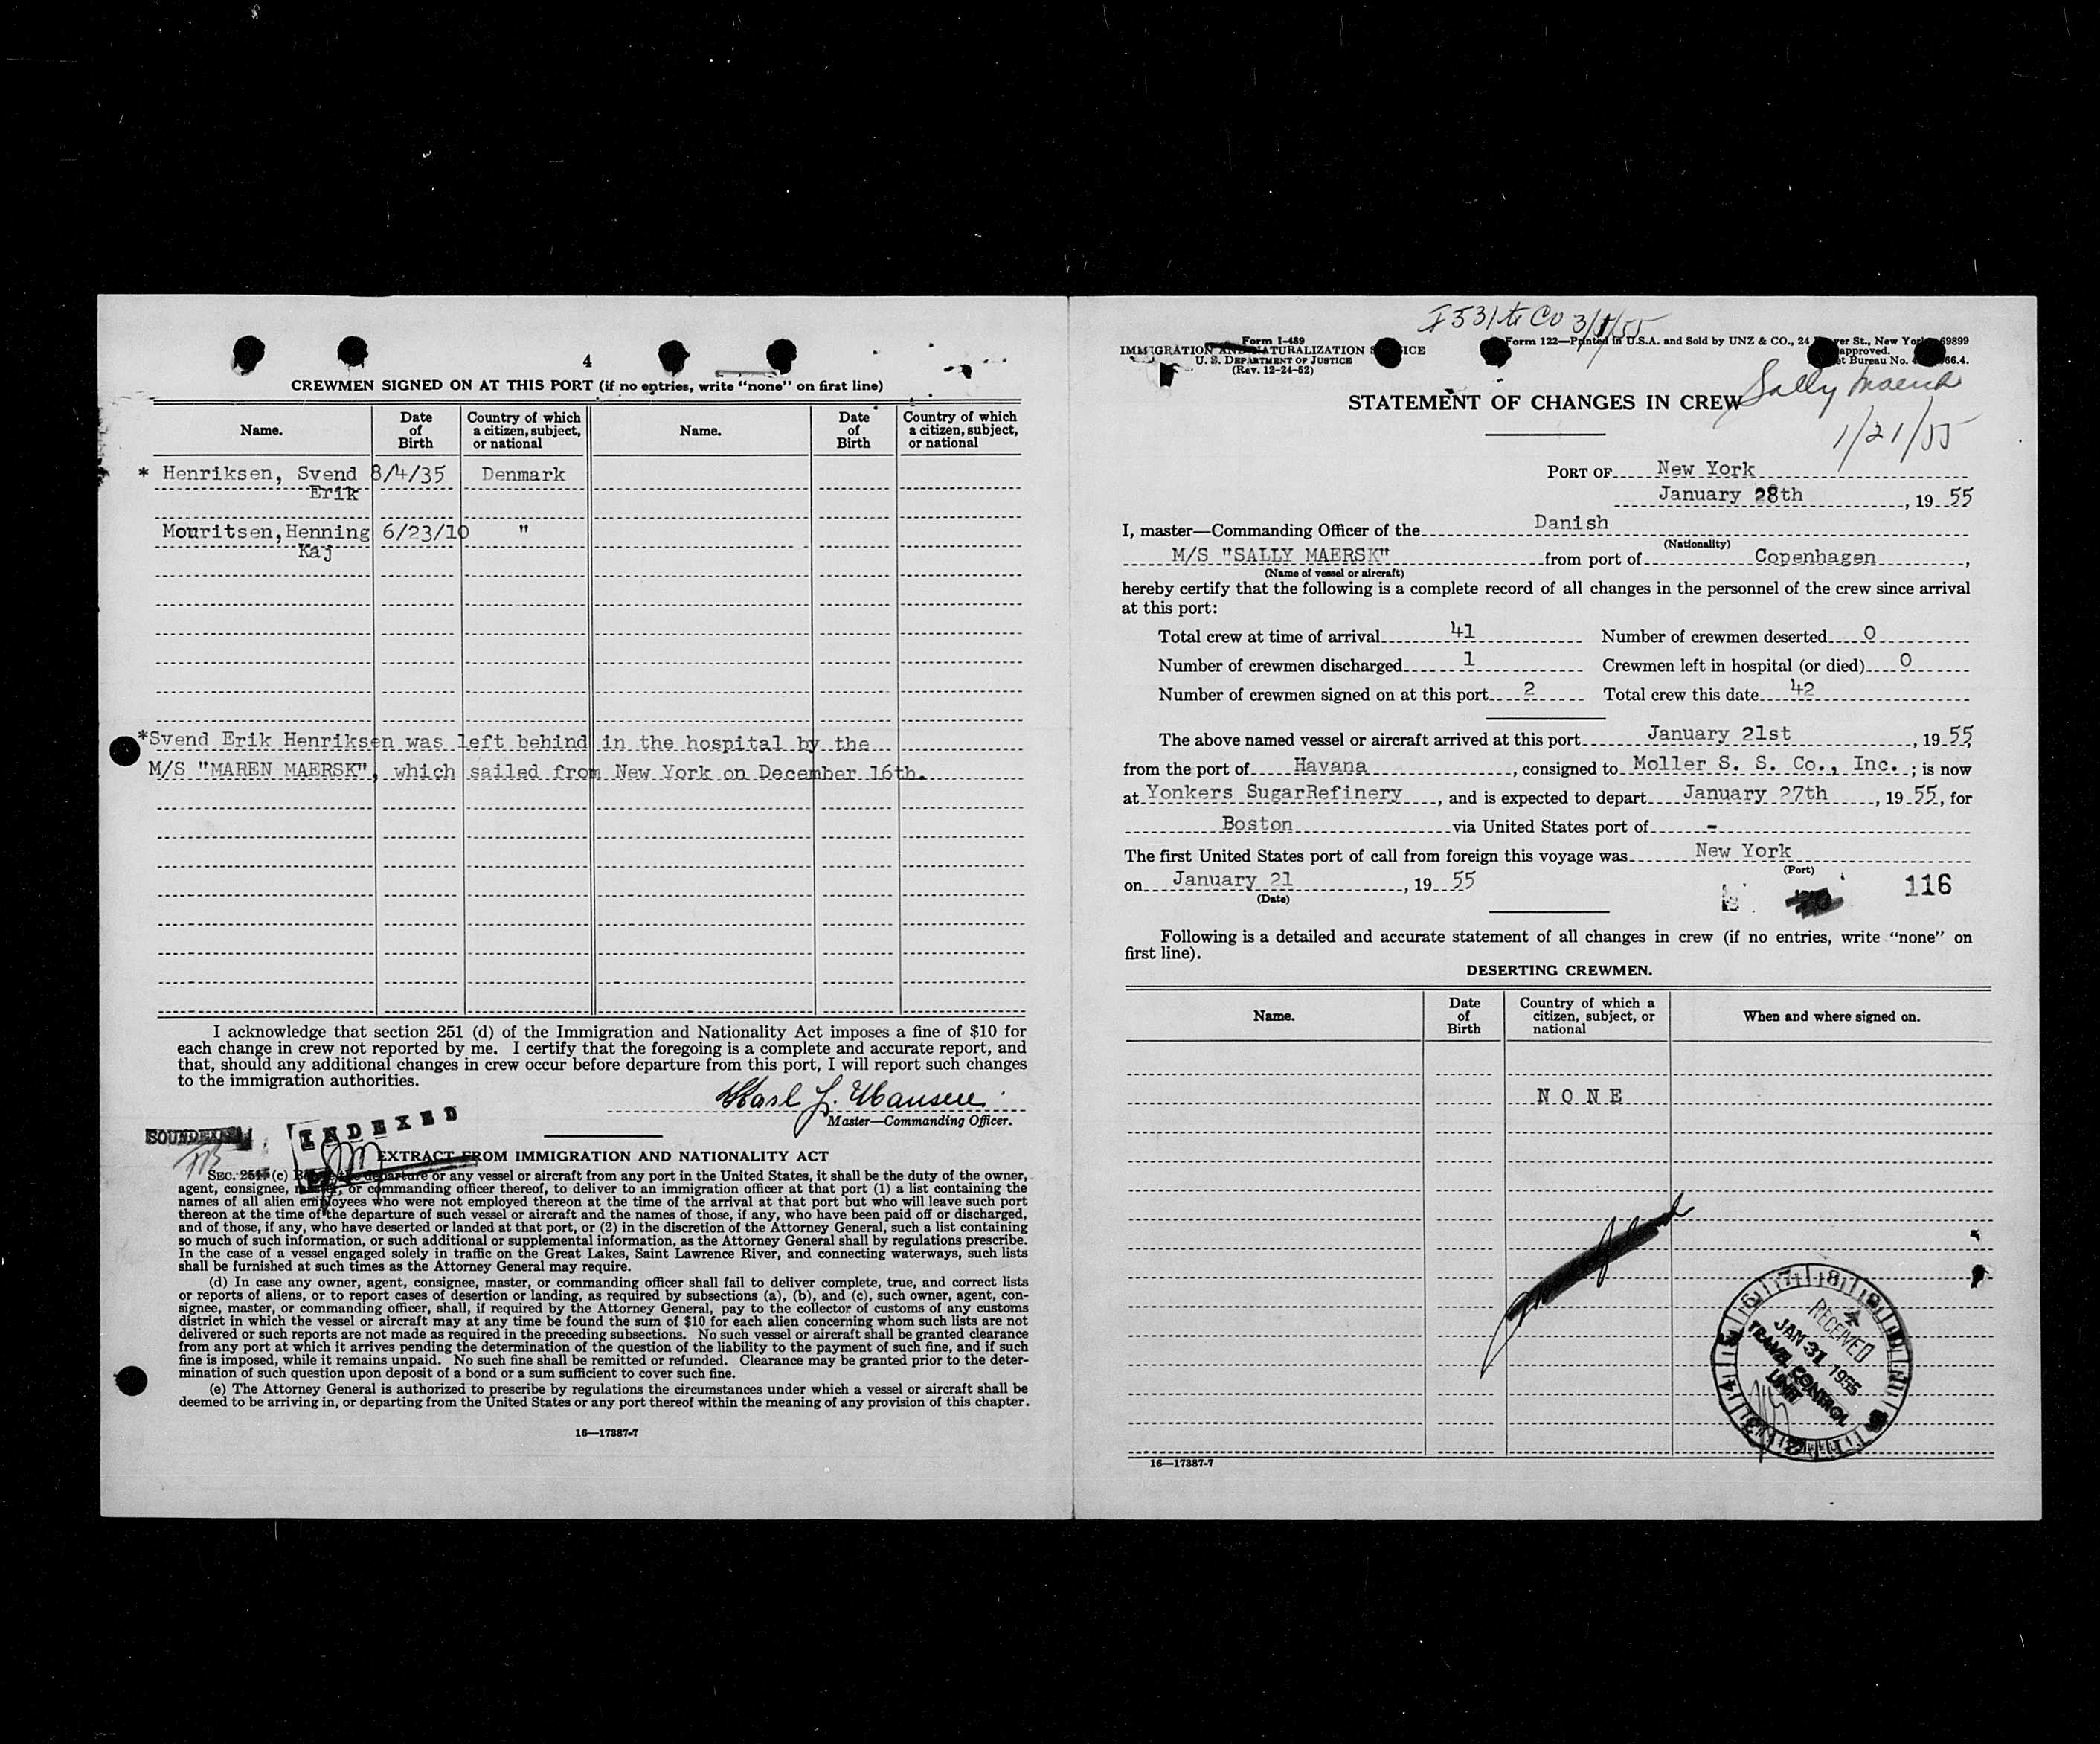 4
CREWMEN SIGNED ON AT THIS PORT (if no entries, write "none" on first line)
Name. Date of Birth Country of which a citizen, subject, or national Name. Date of Birth Country of which a citizen, subject, or national
* Henriksen, Svend 8/4/35 Denmark
Erik
Mouritsen,Henning 6/23/10 "
Kaj
*Svend Erik Henriksen was left behind in the hospital by the
M/S "MAREN MAERSK", which sailed from New York on December 16th.
I acknowledge that section 251 (d) of the Immigration and Nationality Act imposes a fine of $10 for
each change in crew not reported by me. I certify that the foregoing is a complete and accurate report, and
that, should any additional changes in crew occur before departure from this port, I will report such changes
to the immigration authorities.
Master—Commanding Officer.
SOUNDEXED
INDEXED
EXTRACT FROM IMMIGRATION AND NATIONALITY ACT
SEC. 251. (c) departure or any vessel or aircraft from any port in the United States, it shall be the duty of the owner,
agent, consignee, or commanding officer thereof, to deliver to an immigration officer at that port (1) a list containing the
names of all alien employees who were not employed thereon at the time of the arrival at that port but who will leave such port
thereon at the time of the departure of such vessel or aircraft and the names of those, if any, who have been paid off or discharged,
and of those, if any, who have deserted or landed at that port, or (2) in the discretion of the Attorney General, such a list containing
so much of such information, or such additional or supplemental information, as the Attorney General shall by regulations prescribe.
In the case of a vessel engaged solely in traffic on the Great Lakes, Saint Lawrence River, and connecting waterways, such lists
shall be furnished at such times as the Attorney General may require.
(d) In case any owner, agent, consignee, master, or commanding officer shall fail to deliver complete, true, and correct lists
or reports of aliens, or to report cases of desertion or landing, as required by subsections (a), (b), and (c), such owner, agent, con-
signee, master, or commanding officer, shall, if required by the Attorney General, pay to the collector of customs of any customs
district in which the vessel or aircraft may at any time be found the sum of $10 for each alien concerning whom such lists are not
delivered or such reports are not made as required in the preceding subsections. No such vessel or aircraft shall be granted clearance
from any port at which it arrives pending the determination of the question of the liability to the payment of such fine, and if such
fine is imposed, while it remains unpaid. No such fine shall be remitted or refunded. Clearance may be granted prior to the deter-
mination of such question upon deposit of a bond or a sum sufficient to cover such fine.
(e) The Attorney General is authorized to prescribe by regulations the circumstances under which a vessel or aircraft shall be
deemed to be arriving in, or departing from the United States or any port thereof within the meaning of any provision of this chapter.
16—17387-7
3/1/55
Form I-489
IMMIGRATION AND NATURALIZATION SERVICE
U. S. DEPARTMENT OF JUSTICE
(Rev. 12-24-52)
Form 122—Printed in U.S.A. and Sold by UNZ & CO., 24 St., New York 69899
approved.
Bureau No. 66.4.
Sally Maersk
1/21/55
STATEMENT OF CHANGES IN CREW
PORT OF New York
January 28th, 19 55
I, master—Commanding Officer of the Danish
(Nationality)
M/S "SALLY MAERSK" from port of Copenhagen,
(Name of vessel or aircraft)
hereby certify that the following is a complete record of all changes in the personnel of the crew since arrival
at this port:
Total crew at time of arrival 41 Number of crewmen deserted 0
Number of crewmen discharged 1 Crewmen left in hospital (or died) 0
Number of crewmen signed on at this port 2 Total crew this date 42
The above named vessel or aircraft arrived at this port January 21st, 19 55,
from the port of Havana, consigned to Moller S. S. Co., Inc. ; is now
at Yonkers SugarRefinery, and is expected to depart January 27th, 19 55, for
Boston via United States port of -
The first United States port of call from foreign this voyage was New York
(Port)
on January 21, 19 55
(Date)
116
Following is a detailed and accurate statement of all changes in crew (if no entries, write "none" on
first line).
DESERTING CREWMEN.
Name. Date of Birth Country of which a citizen, subject, or national When and where signed on.
N O N E
RECEIVED
JAN 31 1955
TRAVEL CONTROL
UNIT
16—17387-7